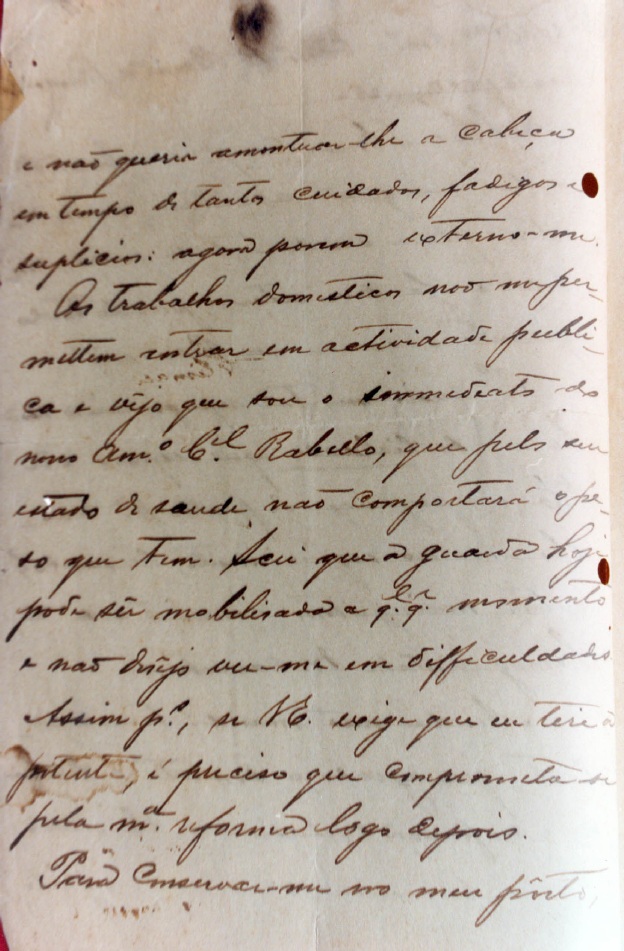 e não queria amontuar-lhe a cabeça
em tempo de tantos cuidados, fadigas e
suplicios: agora porem externo-me.
Os trabalhos domesticos não me per-
mettem entrar em actividade publi-
ca e vejo que sou o immediato do
nosso Am.º C.el Rabello, que pelo seu
estado de saude não comportará o pe-
so que tem. Sei que a guarda hoje
pode sêr mobilisada a q.l q.r momento
e não desejo ver-me em difficuldades.
Assim p.s, se V.E. exige que eu tire a
patente, é preciso que comprometa-se
pela m.a reforma logo depois.
Para conservar-me no meu pôsto,